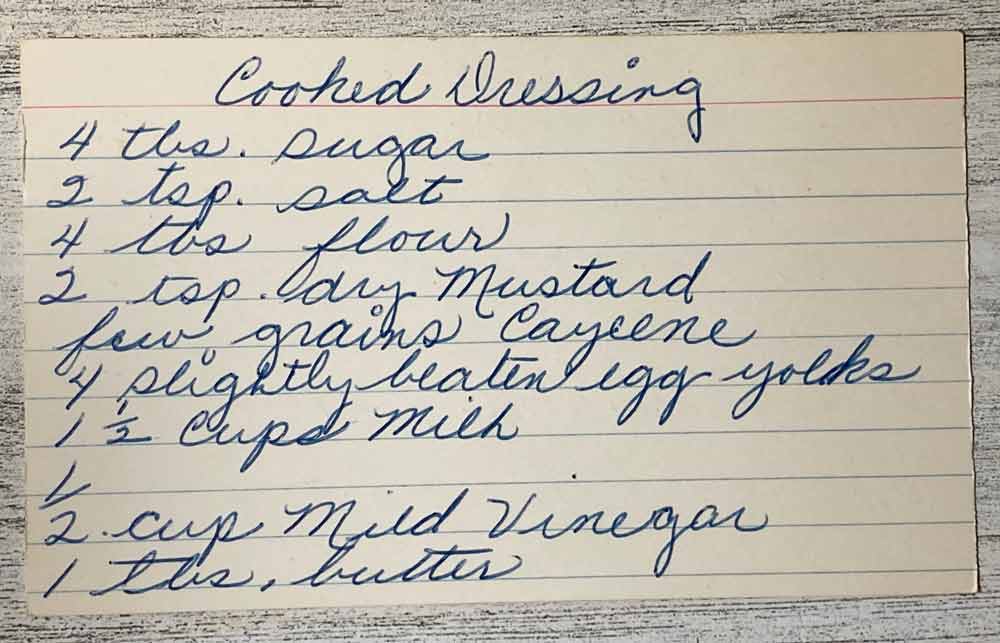 Cooked Dressing
4 tbs. sugar
2 tsp. salt
4 tbs flour
2 tsp. dry Mustard
few grains Cayeene
4 slightly beaten egg yolks
1 1/2 Cups Milk
1/2 cup Mild Vinegar
1 tbs. butter